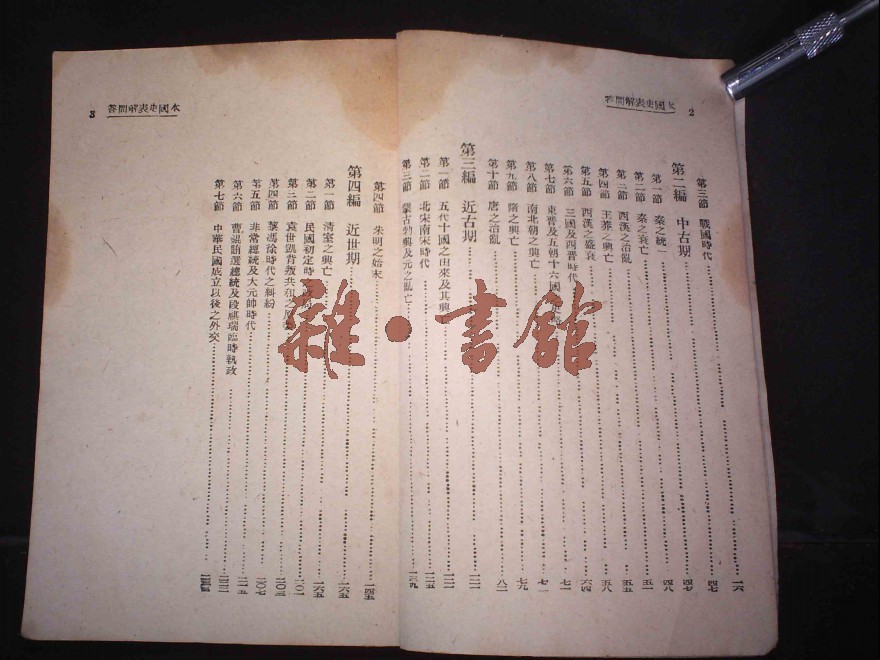 本國史表解問答
2
第三節 戰國時代 一六
第二編 中古期 四七
第一節 秦之統一 四七
第二節 秦之衰亡 四八
第三節 西漢之治亂 五一
第四節 王莽之興亡 五五
第五節 西漢之盛衰 五八
第六節 三國及西晉時代 六四
第七節 東晉及五朝十六國 七一
第八節 南北朝之興亡 七一
第九節 隋之興亡 七九
第十節 唐之治亂 八二
第三編 近古期
第一節 五代十國之由來及其興
第二節 北宋南宋時代 一二五
第三節 蒙古勃興及元之亂亡 一三九
本國史表解問答
3
第四節 朱明之始末 一四五
第四編 近世期 一六五
第一節 清室之興亡 一六五
第二節 民國初定時
第三節 袁世凱背叛共和之
第四節 黎馮徐時代之糾紛 二〇三
第五節 非常總統及大元帥時代 二〇七
第六節 曹錕賄選總統及段祺瑞臨時執政
第七節 中華民國成立以後之外交
雜·書館